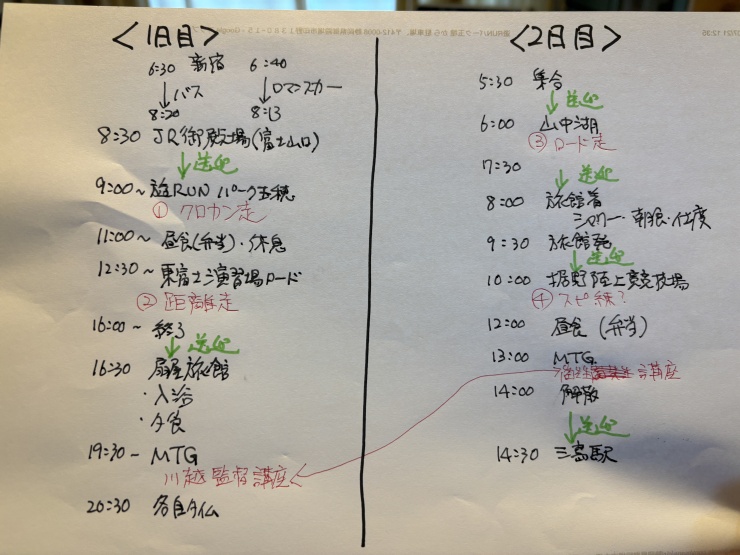 <1日目>
6:30 新宿 6:40
↓バス ↓ロマンスカー
8:20 8:13
8:30 JR御殿場(富士山口)
↓送迎
9:00~ 旅RUNパーク玉穂
① クロカン走
11:00~ 昼食(弁当)・休息
12:30~ 東富士演習場ロード
② 距離走
16:00~ 終了
↓送迎
16:30 扇屋旅館
・入浴
・夕食
19:30~ MTG
川越監督講座
20:30 各自タイム
<2日目>
5:30 集合
↓送迎
6:00 山中湖
③ ロード走
7:30
↓送迎
8:00 旅館着
シャワー・朝飯・仕度
9:30 旅館発
↓送迎
10:00 裾野陸上競技場
④ スピ練?
12:00 昼食(弁当)
13:00 MTG
講座
14:00 解散
↓送迎
14:30 三島駅